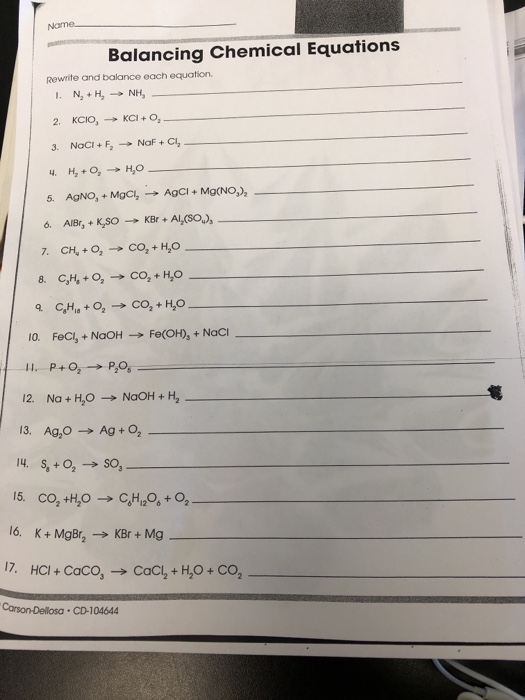 Name
Balancing Chemical Equations
Rewrite and balance each equation.
1. N₂ + H₂ → NH₃
2. KClO₃ → KCl + O₂
3. NaCl + F₂ → NaF + Cl₂
4. H₂ + O₂ → H₂O
5. AgNO₃ + MgCl₂ → AgCl + Mg(NO₃)₂
6. AlBr₃ + K₂SO → KBr + Al₂(SO₄)₃
7. CH₄ + O₂ → CO₂ + H₂O
8. C₃H₈ + O₂ → CO₂ + H₂O
9. C₈H₁₈ + O₂ → CO₂ + H₂O
10. FeCl₃ + NaOH → Fe(OH)₃ + NaCl
11. P + O₂ → P₂O₅
12. Na + H₂O → NaOH + H₂
13. Ag₂O → Ag + O₂
14. S₈ + O₂ → SO₃
15. CO₂ +H₂O → C₆H₁₂O₆ + O₂
16. K + MgBr₂ → KBr + Mg
17. HCl + CaCO₃ → CaCl₂ + H₂O + CO₂
Carson-Dellosa • CD-104644